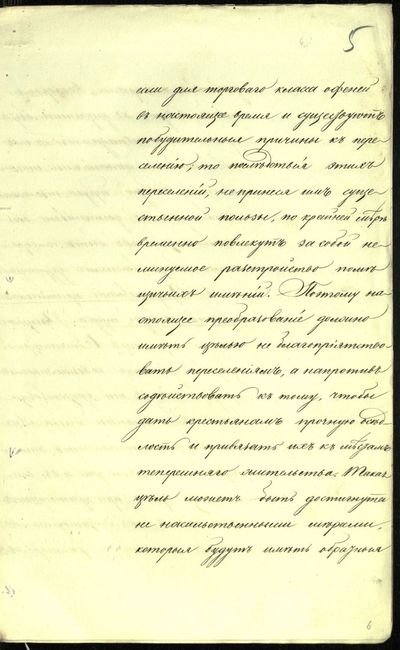 5
если для торговаго класса офеней
въ настоящее время и существуютъ
побудительныя причины къ пере-
селенію, то послѣдствія этихъ
переселеній, не принеся имъ суще-
ственной пользы, по крайней мѣрѣ
временно повлекутъ за собой не-
минуемое разстройство помѣ
щичьихъ имѣній. Поэтому на-
стоящее преобразованіе должно
имѣть цѣлью не благопріятство-
вать переселеніямъ, а напротивъ
содѣйствовать къ тому, чтобы
дать крестьянамъ прочную осѣд-
лость и привязать ихъ къ мѣстамъ
теперешняго жительства. Такая
цѣль можетъ быть достигнута
не насильственными мѣрами,
которыя будутъ имѣть обратныя
6